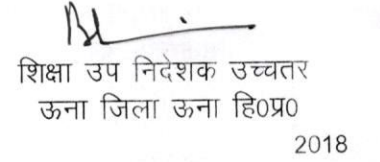 शिक्षा उप निदेशक उच्चतर
ऊना जिला ऊना हि0प्र0
2018